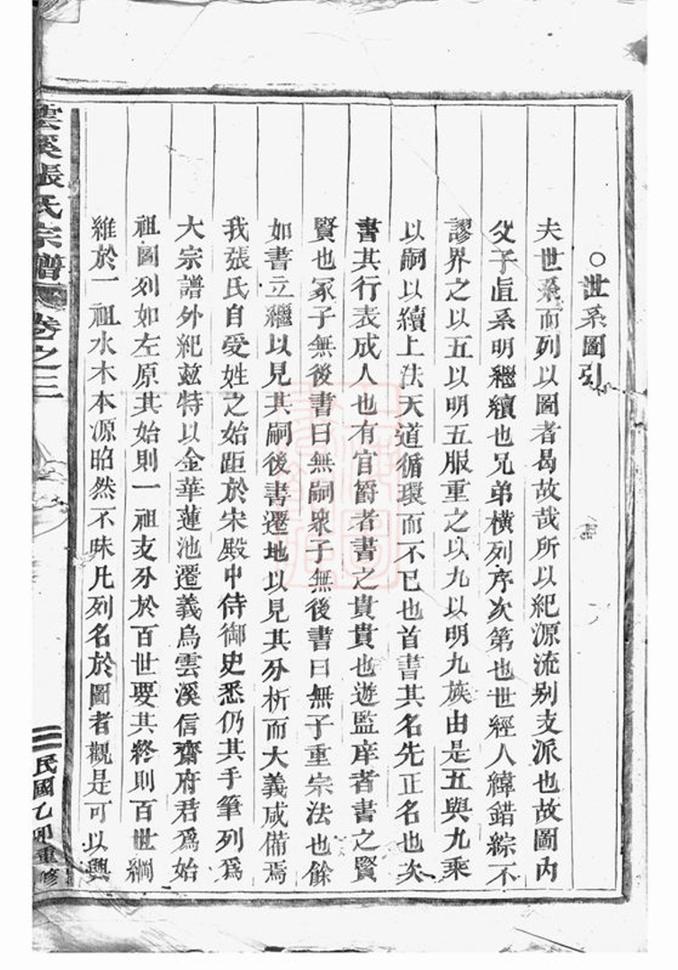 ○世系圖引
夫世系而列以圖者曷故哉所以紀源流别支派也故圖内
父子直系明繼續也兄弟橫列序次第也世經人緯錯綜不
謬界之以五以明五服重之以九以明九族由是五與九乘
以嗣以續上法天道循環而不已也首書其名先正名也次
書其行表成人也有官爵者書之貴貴也遊監庠者書之賢
賢也冢子無後書曰無嗣衆子無後書曰無子重宗法也餘
如書立繼以見其嗣後書遷地以見其分析而大義咸備焉
我張氏自受姓之始距於宋殿中侍御史悉仍其手筆列爲
大宗譜外紀玆特以金華蓮池遷義烏雲溪信齋府君爲始
祖圖列如左原其始則一祖支分於百世要其終則百世綱
維於一祖水木本源昭然不昧凡列名於圖者觀是可以興
雲溪張氏宗譜
卷之三
民國乙卯重修